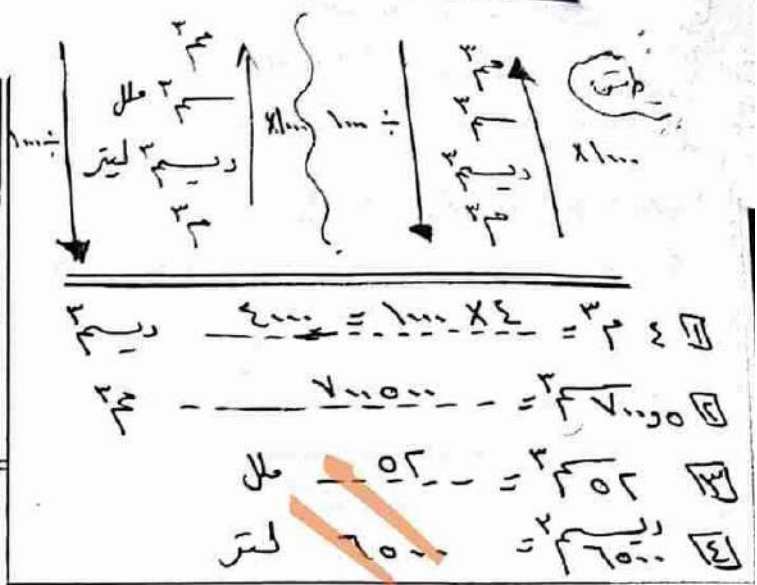 طبق
×١٠٠٠
مم٣
سم٣
ديسم٣
م٣
÷ ١٠٠٠
×١٠٠٠
مم٣
سم٣ ملل
ديسم٣ ليتر
م٣
÷ ١٠٠٠
١ ٤ م٣ = ٤ × ١٠٠٠ = ٤٠٠٠ ديسم٣
٢ ٧٠٠,٥ سم٣ = ٧٠٠٥٠٠ مم٣
٣ ٥٢ سم٣ = ٥٢ ملل
٤ ٦٥٠٠ ديسم٣ = ٦٥٠٠ لتر